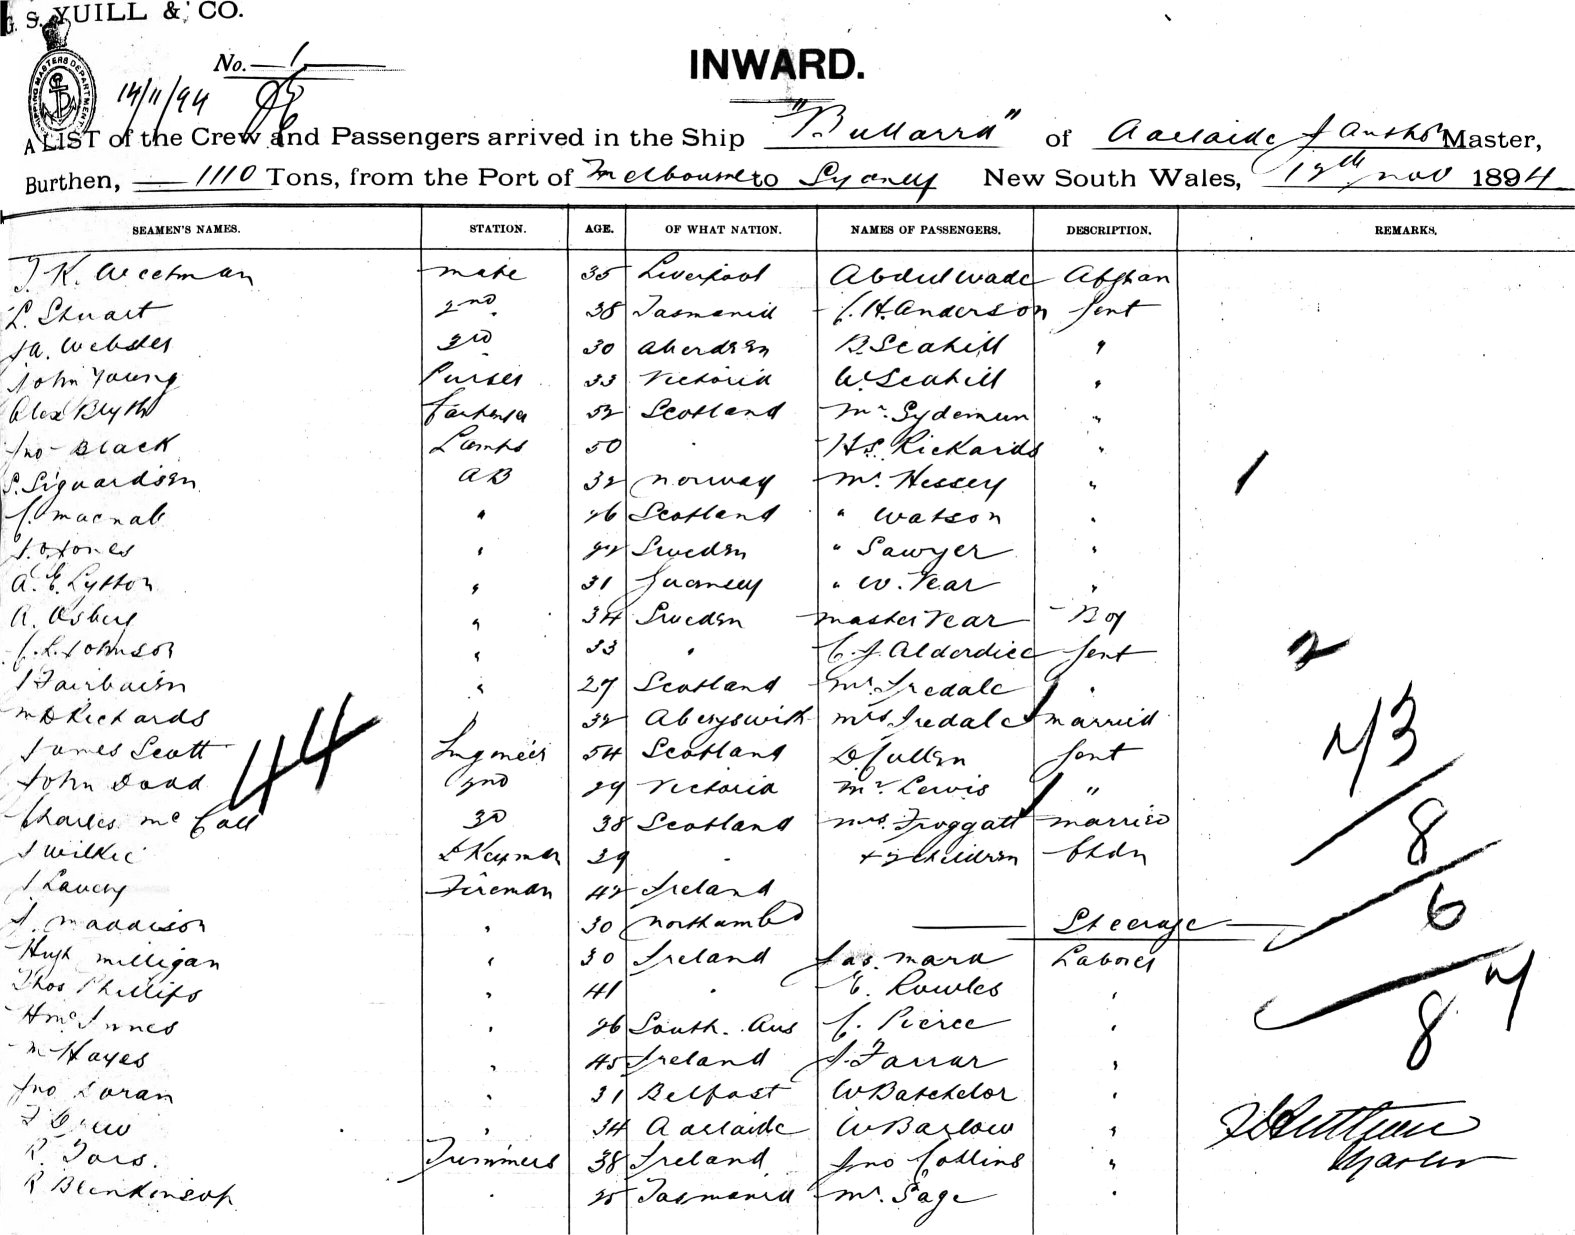 G. S. YUILL & CO.
No. 1
INWARD.
SHIPPING MASTERS DEPARTMENT
14/11/94
A LIST of the Crew and Passengers arrived in the Ship "Bullarra" of Adelaide Master,
Burthen, 1110 Tons, from the Port of Melbourne to Sydney New South Wales, 12th Nov 1894
SEAMEN'S NAMES. STATION. AGE. OF WHAT NATION. NAMES OF PASSENGERS. DESCRIPTION. REMARKS.
J. K. mate 35 Liverpool Abdul Wade Afghan
L. Stuart 2nd 38 Tasmania C. H. Anderson Gent
Ja. Webster 3rd 30 Aberdeen B. Scahill "
John Young Purser 33 Victoria W. Scahill "
Alex Blyth Carpenter 52 Scotland Mr. Sydemun "
Jno Black Lamps 50 " H. S. Rickards "
S. Siguardsen AB 32 Norway Mr. Hessey " 1
C. Macnab " 26 Scotland " Watson "
J. O. Jones " 22 Sweden " Sawyer "
A. E. Lytton " 31 Guernsey " W. Year "
A. Osberg " 34 Sweden Master Year Boy
C. L. Johnson " 33 " C. J. Alderdice Gent 2
J Fairbairn " 27 Scotland Mr. Iredale "
M D Richards " 32 Aberyswith Mrs Iredale married 73
James Scott Engineer 54 Scotland D. Cullen Gent
44
John Dodd 2nd 29 Victoria Mr. Lewis "
Charles McCall 3d 38 Scotland Mrs. Froggatt married 8
J Wilkie Dkeyman 29 " + 2 children Chdn
J Lavery Fireman 42 Ireland
J. Maddison " 30 Northumbd Steerage 6
Hugh Milligan " 30 Ireland Jas. Mara Laborer
Thos Phillips " 41 " E. Rowles " 7
H McInnes " 26 South. Aus C. Pierce " 8
M Hayes " 45 Ireland J. Farrar "
Jno Doran " 31 Belfast W Batchelor "
J Drew " 34 Adelaide W Barlow "
R. Trimmers 38 Ireland Jno Collins " Master
R Blenkinsop " 25 Tasmania Mr. Sage "